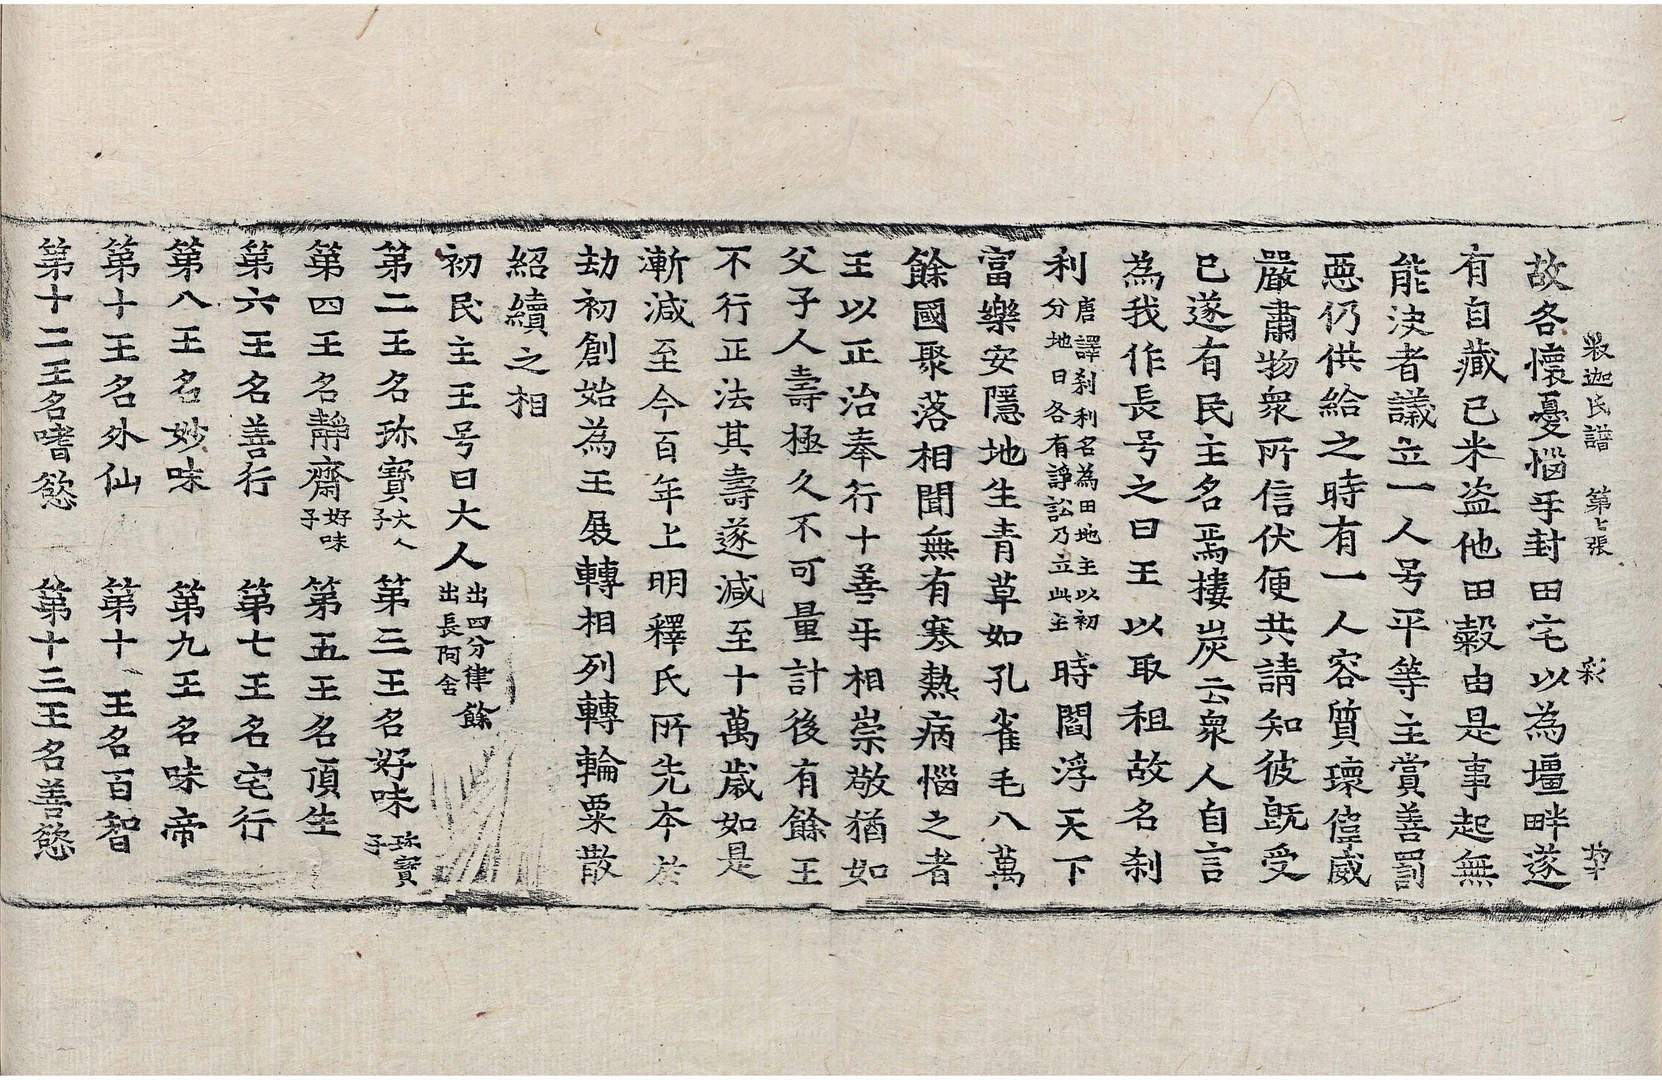 釋迦氏譜 第七張 彩
故各懷憂惱㸦封田宅以為壃畔遂
有自藏已米盗他田穀由是事起無
能決者議立一人号平等主賞善罰
惡仍供給之時有一人容質瓌偉威
嚴肅物衆所信伏便共請知彼旣受
已遂有民主名焉搂炭云衆人自言
為我作長号之曰王以取租故名刹
利唐譯刹利名為田地主以初
分地日各有諍訟乃立此主時閻浮天下
富樂安隱地生青草如孔雀毛八萬
餘國聚落相聞無有寒熱病惱之者
王以正治奉行十善㸦相崇敬猶如
父子人壽極久不可量計後有餘王
不行正法其壽遂減至十萬歲如是
漸減至今百年上明釋氏所先本於
劫初創始為王展轉相列轉輪粟散
紹續之相
初民主王号曰大人出四分律餘
出長阿舍
第二王名珎寶大人
子 第三王名好味珎寶
子
第四王名靜齋好味
子 第五王名頂生
第六王名善行 第七王名宅行
第八王名妙味 第九王名味帝
第十王名外仙 第十 王名百智
第十二王名嗜慾 第十三王名善慾